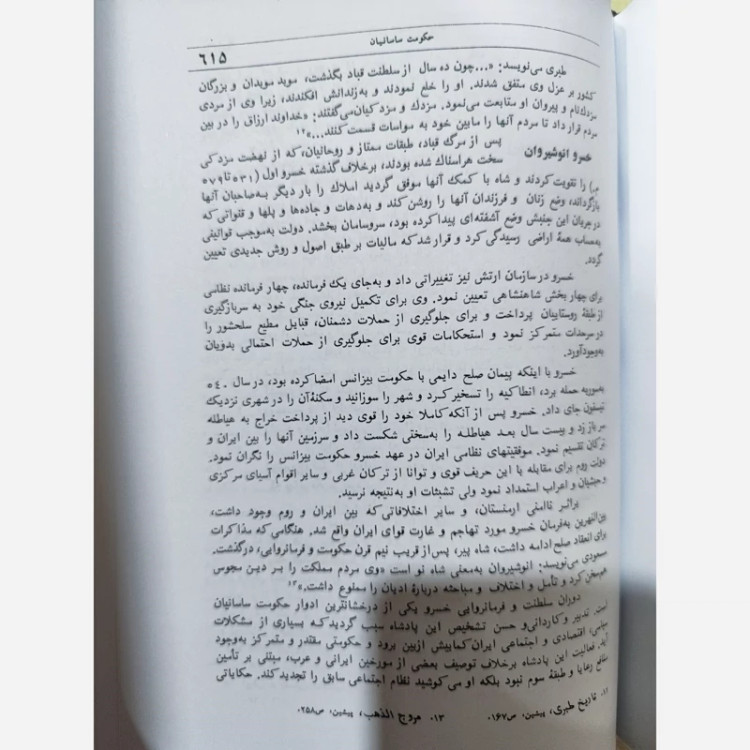 حکومت ساسانیان
۶۱۵
طبری می‌نویسد: «...چون ده سال از سلطنت قباد بگذشت، موبد موبدان و بزرگان
کشور بر عزل وی متفق شدند. او را خلع نمودند و به‌زندانش افکندند، زیرا وی از مردی
مزدک‌نام و پیروان او متابعت می‌نمود. مزدک و مزدکیان می‌گفتند: «خداوند ارزاق را در بین
مردم قرار داد تا مردم آنها را مابین خود به مواسات قسمت کنند...»۱۲
خسرو انوشیروان پس از مرگ قباد، طبقات ممتاز و روحانیان، که از نهضت مزدکی
سخت هراسناک شده بودند، برخلاف گذشته خسرو اول (۵۳۱ تا ۵۷۹
م.) را تقویت کردند و شاه با کمک آنها موفق گردید املاک را بار دیگر به‌صاحبان آنها
بازگرداند، وضع زنان و فرزندان آنها را روشن کند و به‌دهات و جاده‌ها و پلها و قنواتی که
در جریان این جنبش وضع آشفته‌ای پیدا کرده بود، سروسامان بخشد. دولت به‌موجب قوانینی
به‌حساب همهٔ اراضی رسیدگی کرد و قرار شد که مالیات بر طبق اصول و روش جدیدی تعیین
گردد.
خسرو در سازمان ارتش نیز تغییراتی داد و به‌جای یک فرمانده، چهار فرمانده نظامی
برای چهار بخش شاهنشاهی تعیین نمود. وی برای تکمیل نیروی جنگی خود به سربازگیری
از طبقهٔ روستاییان پرداخت و برای جلوگیری از حملات دشمنان، قبایل مطیع سلحشور را
در سرحدات متمرکز نمود و استحکامات قوی برای جلوگیری از حملات احتمالی بدویان
به‌وجود آورد.
خسرو با اینکه پیمان صلح دایمی با حکومت بیزانس امضا کرده بود، در سال ۵۴۰
به‌سوریه حمله برد، انطاکیه را تسخیر کرد و شهر را سوزانید و سکنهٔ آن را در شهری نزدیک
تیسفون جای داد. خسرو پس از آنکه کاملا خود را قوی دید از پرداخت خراج به هیاطله
سر باز زد و بیست سال بعد هیاطله را به‌سختی شکست داد و سرزمین آنها را بین ایران و
ترکان تقسیم نمود. موفقیتهای نظامی ایران در عهد خسرو حکومت بیزانس را نگران نمود.
دولت روم برای مقابله با این حریف قوی و توانا از ترکان غربی و سایر اقوام آسیای مرکزی
و حبشیان و اعراب استمداد نمود ولی تشبثات او به‌نتیجه نرسید.
براثر ناامنی ارمنستان، و سایر اختلافاتی که بین ایران و روم وجود داشت،
بین‌النهرین به‌فرمان خسرو مورد تهاجم و غارت قوای ایران واقع شد. هنگامی که مذاکرات
برای انعقاد صلح ادامه داشت، شاه پیر، پس از قریب نیم قرن حکومت و فرمانروایی، درگذشت.
مسعودی می‌نویسد: انوشیروان به‌معنی شاه نو است «وی مردم مملکت را بر دین مجوس
هم‌سخن کرد و تأمل و اختلاف و مباحثه دربارهٔ ادیان را ممنوع داشت.»۱۳
دوران سلطنت و فرمانروایی خسرو یکی از درخشانترین ادوار حکومت ساسانیان
است. تدبیر و کاردانی و حسن تشخیص این پادشاه سبب گردید که بسیاری از مشکلات
سیاسی، اقتصادی و اجتماعی ایران کمابیش ازبین برود و حکومتی مقتدر و متمرکز به‌وجود
آید. فعالیت این پادشاه برخلاف توصیف بعضی از مورخین ایرانی و عرب، مبتنی بر تأمین
منافع رعایا و طبقهٔ سوم نبود بلکه او می‌کوشید نظام اجتماعی سابق را تجدید کند. حکایاتی
تاریخ طبری، پیشین، ص۱۶۷. ۱۳. مروج الذهب، پیشین، ص۲۵۸.